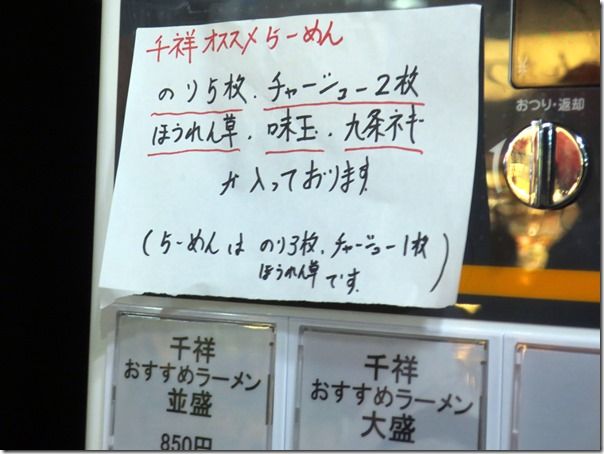 千祥オススメらーめん
のり5枚、チャーシュー2枚
ほうれん草、味玉、九条ネギ
が入っております
(らーめんは のり3枚、チャーシュー1枚
ほうれん草 です)
おつり・返却
千祥
おすすめラーメン
並盛
850円
千祥
おすすめラーメン
大盛